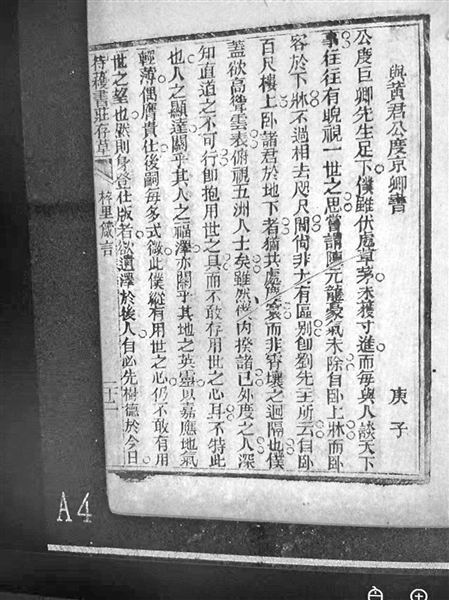 與黃君公度京卿書 庚子
公度巨卿先生足下僕雖伏處草茅未獲寸進而每與人談天下
事往往有睨視一世之思嘗謂陳元龍豪氣未除自卧上牀而卧
客於下牀不過相去咫尺間尚非大有區別卽劉先主所云自卧
百尺樓上卧諸君於地下者猶共處寰而非霄壤之迥隔也僕
蓋欲高聳雲表俯視五洲人士矣雖然內揆諸己外度之人深
知直道之不可行卽抱用世之具而不敢存用世之心耳不特此
也人之顯達關乎其人之福澤亦關乎其地之英靈以嘉應地氣
輕薄偶膺貴仕後嗣每多式微此僕縱有用世之心仍不敢有用
世之望也然則身登仕版者欲遺澤於後人自必先樹德於今日
待穫書莊存草 梓里儆言
A4